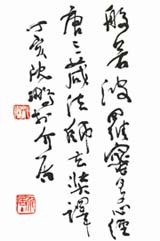 般若波羅蜜多心經
唐三藏法師玄奘譯
丁亥沈鵬 介居